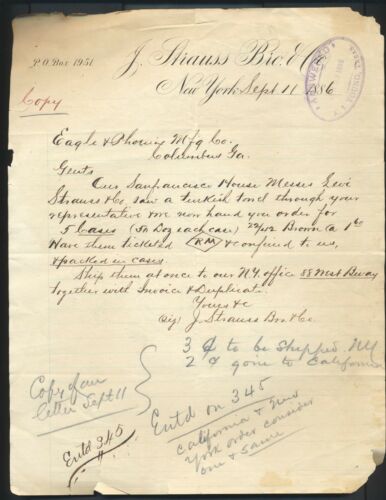 P.O. Box 1951
J. Strauss Bro. & Co.
New York Sept 11 1886
ANSWERED
Copy
Eagle & Phenix Mfg Co.
Columbus Ga.
Gents
Our Sanfrancisco House Messrs Levi
Strauss & Co. saw a turkish towel through your
representative & we now hand you order for
5 cases (50 Doz each case) 22/42 Brown @ 1
Have them ticketed RM & confined to us,
& packed in cases.
Ship them at once to our N.Y. office 58 West Bway
together with Invoice & Duplicate.
Yours &c
(sig) J. Strauss Bro. & Co.
3 to be shipped N.Y.
2 goin to California
Copy of our
letter Sept 11
Entd on 345
California & New
York order consider
one & same
Entd 345